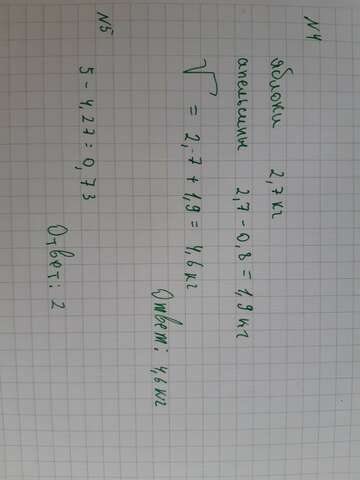 N4
яблоки 2,7 кг
апельсины 2,7 - 0,8 = 1,9 кг
V = 2,7 + 1,9 = 4,6 кг
Ответ: 4,6 кг
N5
5 - 4,27 = 0,73
Ответ: 2